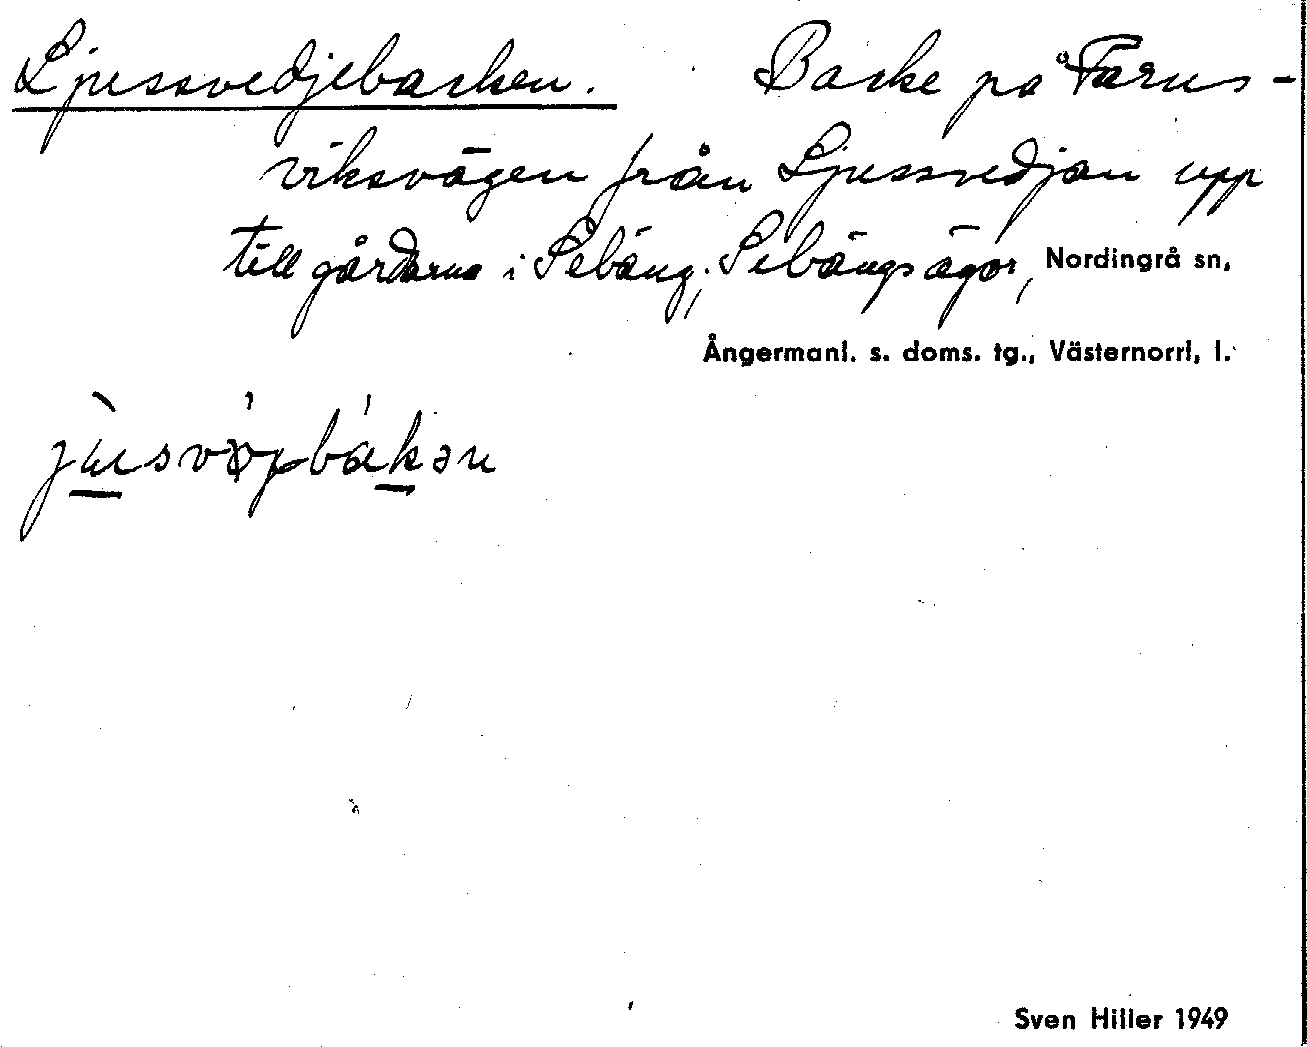 Ljussvedjebacken. Backe på Farus-
viksvägen från Ljussvedjan upp
till gårdarna i Sebäng, Sebängs ägor, Nordingrå sn,
Ångermanl. s. doms. tg., Västernorrl. l.
Sven Hiller 1949